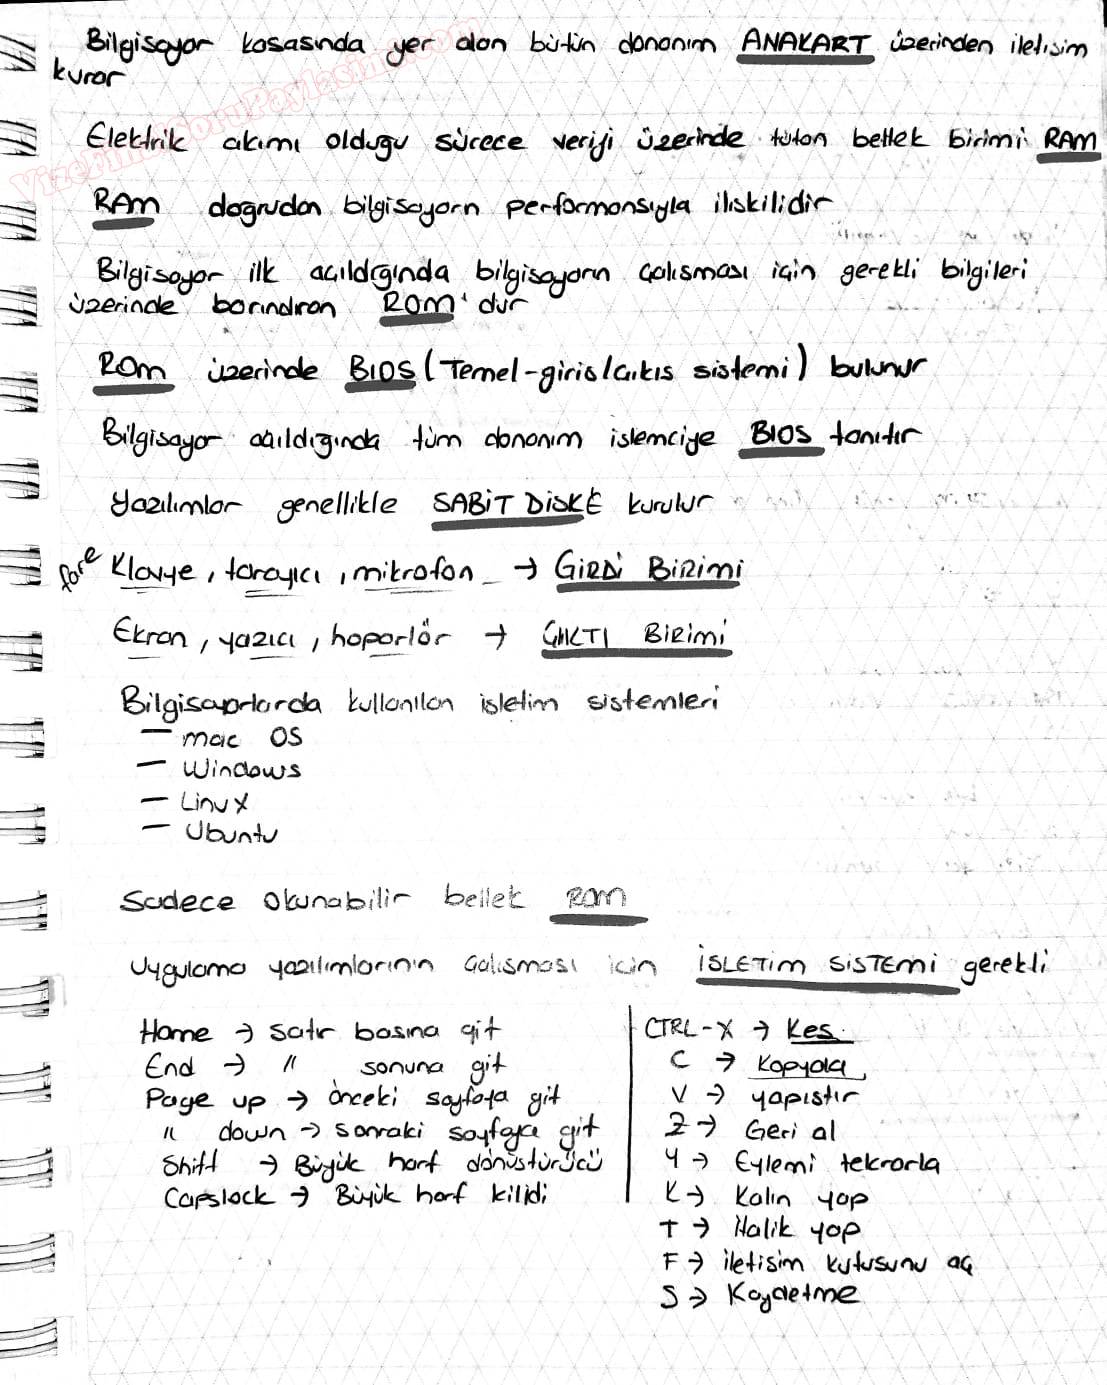 Bilgisayar kasasında yer alan bütün donanım ANAKART üzerinden iletisim
kurar
VizeFinalSoruPaylasimi.com
Elektrik akımı olduğu sürece veriyi üzerinde tutan bellek birimi RAM
RAM doğrudan bilgisayarn performansıyla iliskilidir
Bilgisayar ilk acıldıgında bilgisayarın çalısması için gerekli bilgileri
üzerinde barındıran ROM'dur
ROM üzerinde BIOS (Temel-giris/cıkıs sistemi) bulunur
Bilgisayar acıldıgında tüm donanım islemciye BIOS tanıtır
Yazılımlar genellikle SABİT DİSKE kurulur
fare Klavye, tarayıcı, mikrofon → GİRDİ BİRİMİ
Ekran, yazıcı, hoparlör → ÇIKTI BİRİMİ
Bilgisayarlarda kullanılan isletim sistemleri
— mac OS
— Windows
— Linux
— Ubuntu
Sadece okunabilir bellek ROM
Uygulama yazılımlarının calısması icin İSLETİM SİSTEMİ gerekli
Home → satır basına git
End → " sonuna git
Page up → önceki sayfaya git
" down → sonraki sayfaya git
Shift → Büyük harf dönüstürücü
Capslock → Büyük harf kilidi
CTRL-X → Kes
C → Kopyala
V → yapıstır
Z → Geri al
Y → Eylemi tekrarla
K → Kalın yap
T → İtalik yap
F → iletisim kutusunu aç
S → Kaydetme